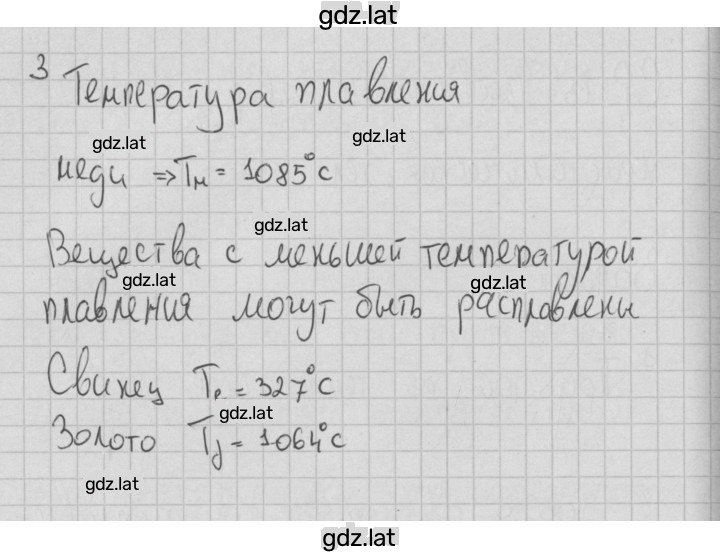 gdz.lat
3 Температура плавления
gdz.lat
gdz.lat
меди => Tм = 1085°C
gdz.lat
Вещества с меньшей температурой
gdz.lat
gdz.lat
плавления могут быть расправлены
Свинец Tp = 327°C
gdz.lat
Золото Tg = 1064°C
gdz.lat
gdz.lat